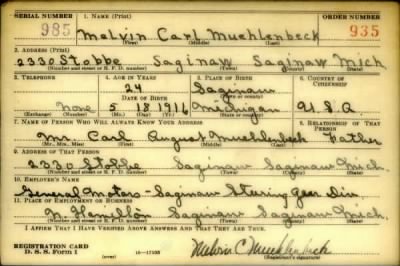 SERIAL NUMBER 1. NAME (Print) ORDER NUMBER
985 Melvin Carl Muehlenbeck 935
(First) (Middle) (Last)
2. ADDRESS (Print)
2330 Stobbe Saginaw Saginaw Mich.
(Number and street or R. F. D. number) (Town) (County) (State)
3. TELEPHONE 4. AGE IN YEARS 5. PLACE OF BIRTH 6. COUNTRY OF CITIZENSHIP
24 Saginaw
DATE OF BIRTH (Town or county)
none 5 18 1916 Michigan U.S.A
(Exchange) (Number) (Mo.) (Day) (Yr.) (State or country)
7. NAME OF PERSON WHO WILL ALWAYS KNOW YOUR ADDRESS 8. RELATIONSHIP OF THAT PERSON
Mr. Carl August Muehlenbeck Father
(Mr., Mrs., Miss) (First) (Middle) (Last)
9. ADDRESS OF THAT PERSON
2330 Stobbe Saginaw Saginaw Mich.
(Number and street or R. F. D. number) (Town) (County) (State)
10. EMPLOYER'S NAME
General Motors - Saginaw Steering Gear Div.
11. PLACE OF EMPLOYMENT OR BUSINESS
N. Hamilton Saginaw Saginaw Mich.
(Number and street or R. F. D. number) (Town) (County) (State)
I AFFIRM THAT I HAVE VERIFIED ABOVE ANSWERS AND THAT THEY ARE TRUE.
REGISTRATION CARD
D. S. S. Form 1 (over) Melvin C Muehlenbeck
(Registrant's signature)